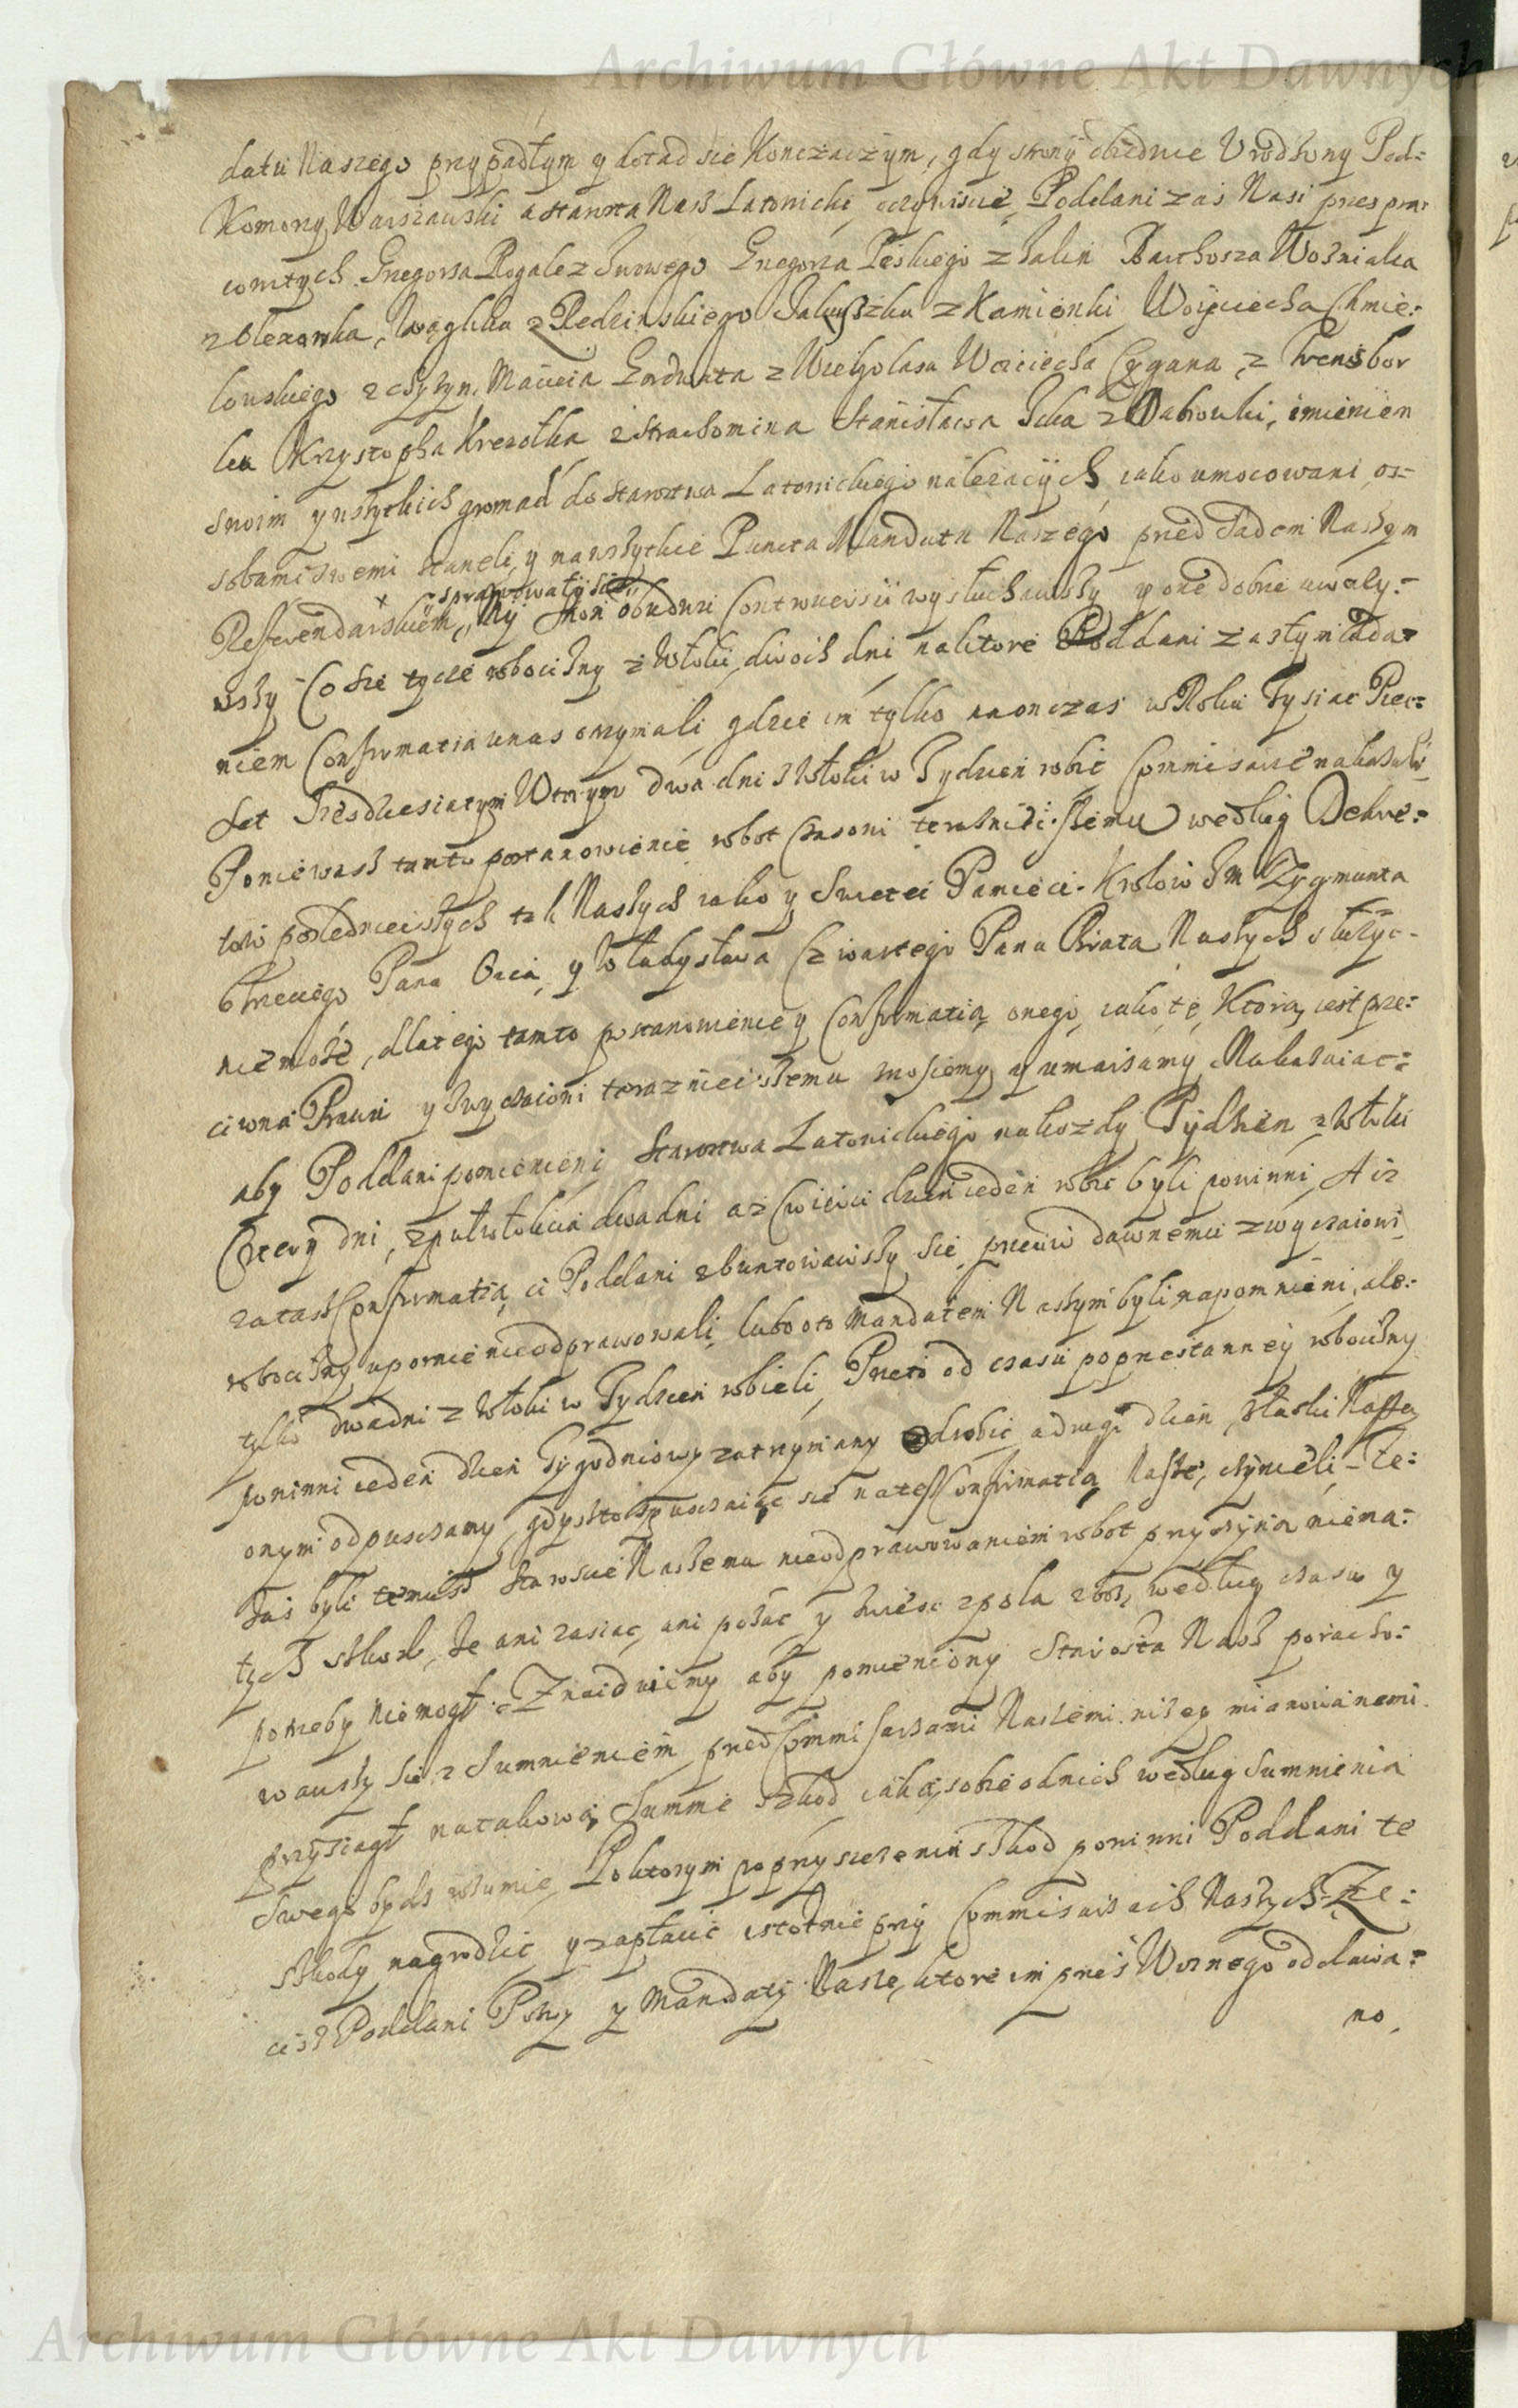 Archiwum Główne Akt Dawnych
datu Naszego przypadłym y dotad sie Konczaczym, gdy strony obiedwie Urodzony Pod=
Komorzy Warszawski a starosta Nasz Latowicki oczywiscie, Poddani zas Nasi przes
Grzegorza Rogale z Grzegorza Peskiego z Jakuszka z Kamionki Woyciecha Chmie:
lowskiego Macieia z Wielgolasa Woiciecha Cygana, z Trensbor
ku Krzystopha z Strachomina Stanisława z Dabrowki, imieniem
swoim y wszytkich gromad do Starostwa Latowickiego nalezacijch iako umocowani, os=
sobami swemi staneli, y na wszytkie Puncta Mandatu Naszego przed Sadem Naszym
sprawowały sie
Referendarskiem, My Stron obudwu Controuersii wysłuchawszy y one dobrze uwazy=
wszy Co sie tycze robocizny z Włoki dwoch dni na ktore Poddani
niem Confirmatia u nas otrzymali gdzie im tylko na on czas w Roku Tysiac Piec=
Set Trzesdziesiatym Wtorym dwa dni z Włoki w Tydzien robic Commissarze nakazali
Poniewasz tamto postanowienie robot Czasowi terazniei:szemu według Dekre=
tow poslednieiszych tak Naszych iako y Swietei Pamieci Krolow Im Zygmunta
trzeciego Pana Oica, y Władysława Czwartego Pana Brata Naszych słuzyc
nie moze, dlatego tamto postanowienie y Confirmatią onego, iako tę, Ktora iest prze=
ciwna Prawu y zwyczaiowi teraznieiszemu znosiemy y umarzamy Nakazuiac=
aby Poddani pomienieni Starostwa Latowickiego na kozdy Tydzien z Włoki
Cztery dni, z puł włoki dwa dni a z Cwierci dzien ieden robic byli powinni, A iz
za tasz Confirmatią ci Poddani zbuntowawszy sie przeciw dawnemu zwyczaiowi
robocizny upornie nie odprawowali, lubo oto Mandatem Naszym byli napomnieni, ale=
tylko dwa dni z Włoki w Tydzien robieli, Przeto od czasu poprzestanney robocizny
powinni ieden dzien Tygodniowy zatrzymany odrobic a drugi dzien z łaski Naszey
onym odpusczamy, gdysz to spusczaiąc sie na tesz Confirmatią Nasze, czynieli, Ze=
zas byli temusz Staroscie Naszemu nieodprawowaniem robot przyczyna niema=
łych szkod, ze ani zasiac, ani pozac y zwiesc z pola zboz, według czasu y
potrzeby nie mogł. Znaiduiemy aby pomieniony Starosta Nasz poracho=
wawszy sie z Sumnieniem przed Commissarzami Naszemi nizey mianowanemi
przysiągł na takową Summe szkod, iaką sobie od nich według Sumnienia
Swego bydz rozumie, Po ktorym poprzysiezeniu szkod powinni Poddani te
szkody nagrodzic y zapłacic istotnie przy Commissarzach Naszych. Ze=
cisz Poddani Pozwy y Mandaty Nasze, ktore im przes Woznego oddawa=
no,
Archiwum Główne Akt Dawnych